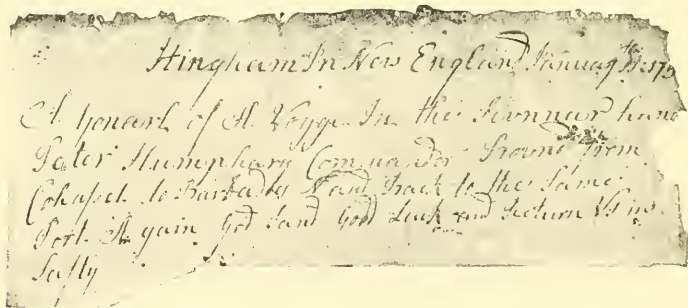 Hingham In New England January 11th 175
A Jonearl of A Voyge In the Scunnar hana
Pater Humphary Comandor Bound from
Cohasel to Barbados and Back to the Same
Port A gain God Sand Good Luck and Return Us in
Safty